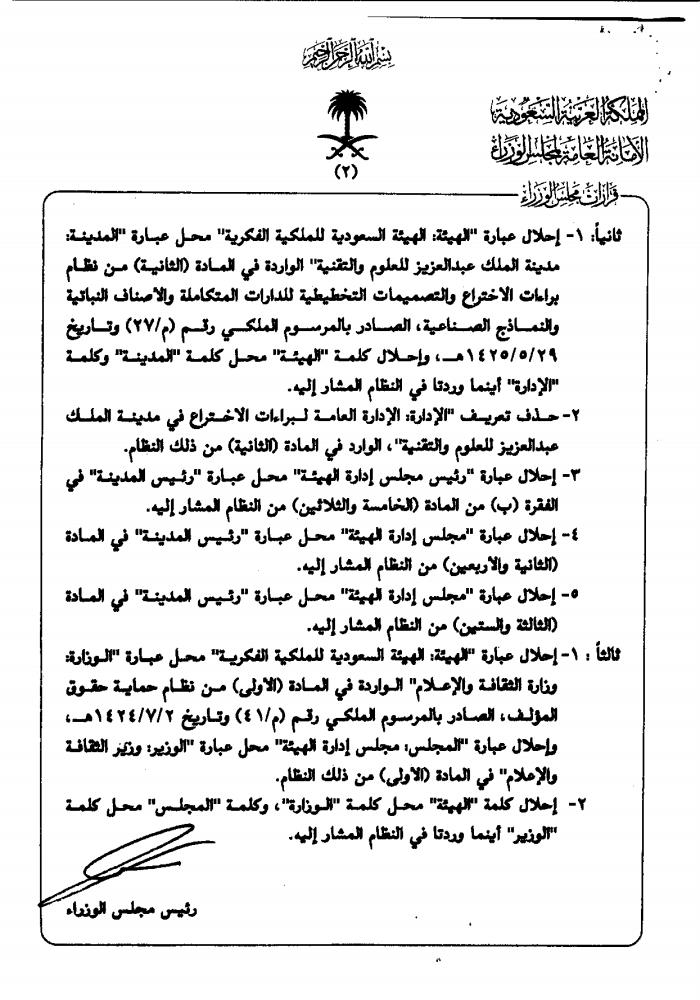 بسم الله الرحمن الرحيم
المملكة العربية السعودية
الأمانة العامة لمجلس الوزراء
(٢)
قرارات مجلس الوزراء
ثانياً: ١- إحلال عبارة "الهيئة: الهيئة السعودية للملكية الفكرية" محل عبارة "المدينة:
مدينة الملك عبدالعزيز للعلوم والتقنية" الواردة في المادة (الثانية) من نظام
براءات الاختراع والتصميمات التخطيطية للدارات المتكاملة والأصناف النباتية
والنماذج الصناعية، الصادر بالمرسوم الملكي رقم (م/٢٧) وتاريخ
١٤٢٥/٥/٢٩هـ، وإحلال كلمة "الهيئة" محل كلمة "المدينة" وكلمة
"الإدارة" أينما وردتا في النظام المشار إليه.
٢- حذف تعريف "الإدارة: الإدارة العامة لبراءات الاختراع في مدينة الملك
عبدالعزيز للعلوم والتقنية"، الوارد في المادة (الثانية) من ذلك النظام.
٣- إحلال عبارة "رئيس مجلس إدارة الهيئة" محل عبارة "رئيس المدينة" في
الفقرة (ب) من المادة (الخامسة والثلاثين) من النظام المشار إليه.
٤- إحلال عبارة "مجلس إدارة الهيئة" محل عبارة "رئيس المدينة" في المادة
(الثانية والأربعين) من النظام المشار إليه.
٥- إحلال عبارة "مجلس إدارة الهيئة" محل عبارة "رئيس المدينة" في المادة
(الثالثة والستين) من النظام المشار إليه.
ثالثاً: ١- إحلال عبارة "الهيئة: الهيئة السعودية للملكية الفكرية" محل عبارة "الوزارة:
وزارة الثقافة والإعلام" الواردة في المادة (الأولى) من نظام حماية حقوق
المؤلف، الصادر بالمرسوم الملكي رقم (م/٤١) وتاريخ ١٤٢٤/٧/٢هـ،
وإحلال عبارة "المجلس: مجلس إدارة الهيئة" محل عبارة "الوزير: وزير الثقافة
والإعلام" في المادة (الأولى) من ذلك النظام.
٢- إحلال كلمة "الهيئة" محل كلمة "الوزارة"، وكلمة "المجلس" محل كلمة
"الوزير" أينما وردتا في النظام المشار إليه.
رئيس مجلس الوزراء